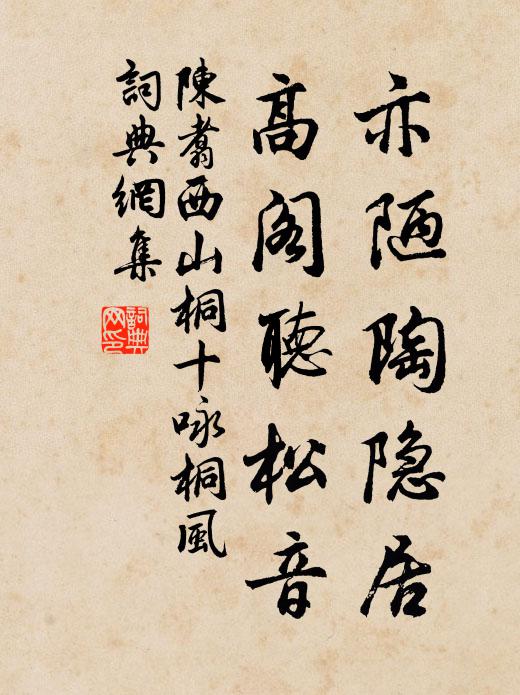 亦陋陶隐居
高阁聽松音
陳翥西山桐十咏桐風
詞典網集
詞典网印